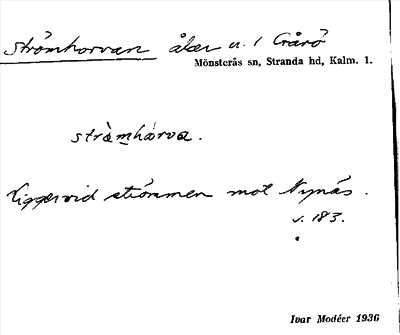 Strömhorvan åker u. / Crårö
Mönsterås sn, Stranda hd, Kalm. 1.
stràmhàrva.
Ligger vid strömmen mot Nynäs.
s. 183.
Ivar Modéer 1936